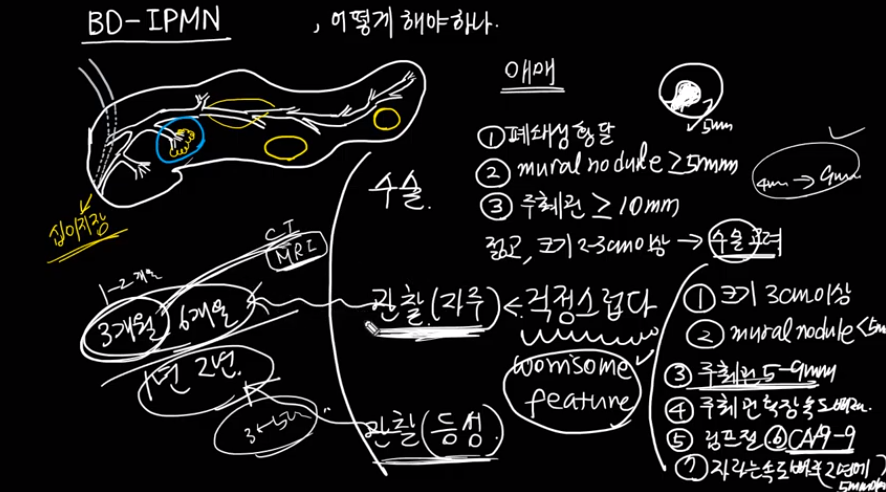 BD-IPMN , 어떻게 해야하나.
애매
5mm
① 폐쇄성 황달
② mural nodule ≥5mm
③ 주췌관 ≥ 10mm
4mm → 9mm
수술.
젊고, 크기 2-3cm 이상 → 수술 고려
십이지장
CT
MRI
1-2개월
3개월 6개월
관찰(자주) ← 걱정스럽다
worrisome
feature
1년 2년.
3~5년
관찰(듬성)
① 크기 3cm이상
② mural nodule <5mm
③ 주췌관 5-9mm
④ 주췌관 확장 속도 빠르다.
⑤ 림프절 ⑥ CA19-9
⑦ 자라는 속도 빠른 (2년에
5mm이상)